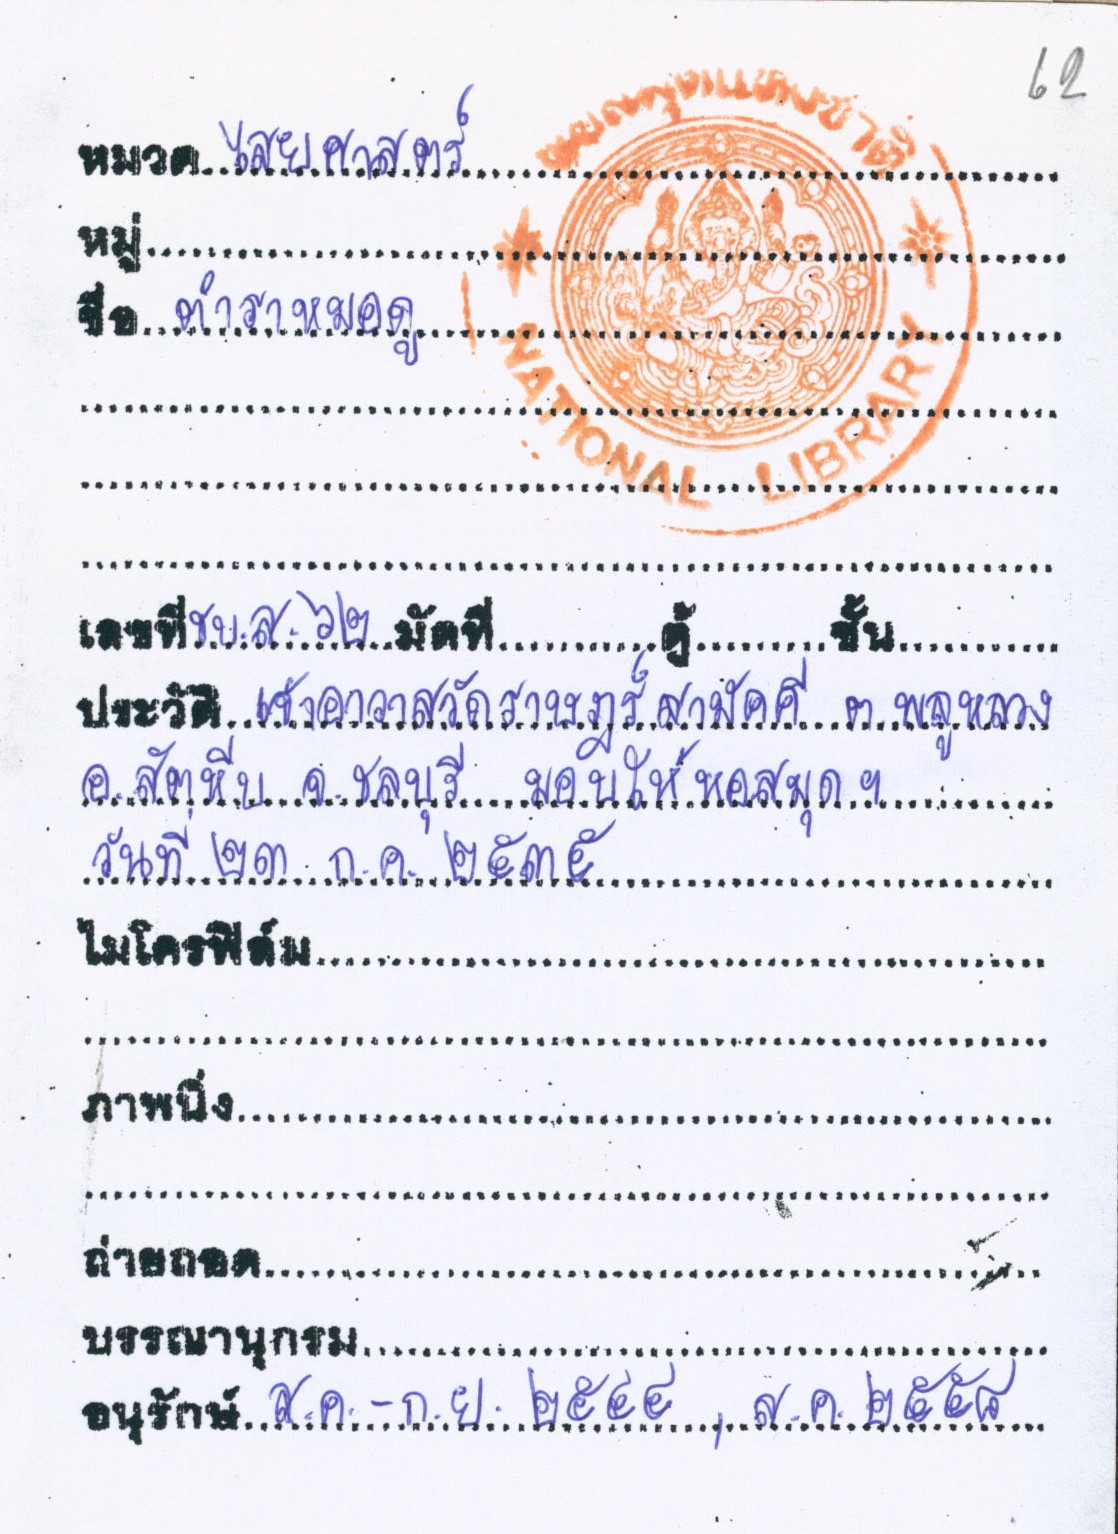 62
หอสมุดแห่งชาติ
NATIONAL LIBRARY
หมวด ไสยศาสตร์
หมู่
ชื่อ ตำราหมอดู
เลขที่ ชบ.ส. ๖๒ มัดที่ ตู้ ชั้น
ประวัติ เจ้าอาวาสวัดราษฎร์สามัคคี ต.พลูหลวง
อ.สัตหีบ จ.ชลบุรี มอบให้หอสมุดฯ
วันที่ ๒๓ ก.ค. ๒๕๓๕
ไมโครฟิล์ม
ภาพนิ่ง
ถ่ายถอด
บรรณานุกรม
อนุรักษ์ ส.ค.-ก.ย. ๒๕๔๔ , ส.ค. ๒๕๕๘